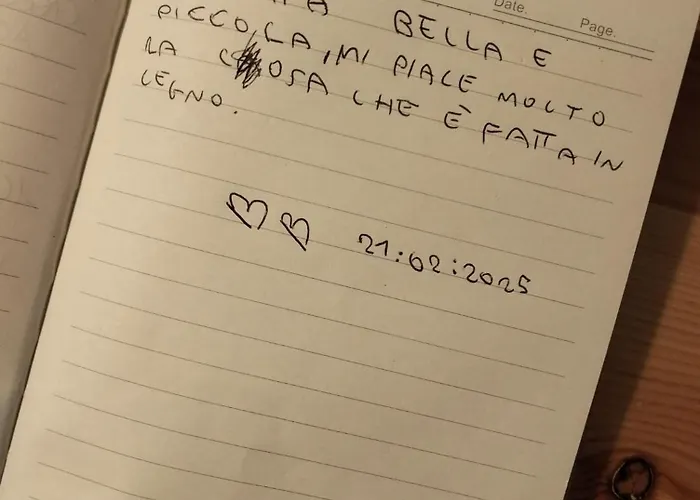 Date.
Page.
BELLA E
PICCOLA, MI PIACE MOLTO
LA COSA CHE È FATTA IN
LEGNO.
21:02:2025